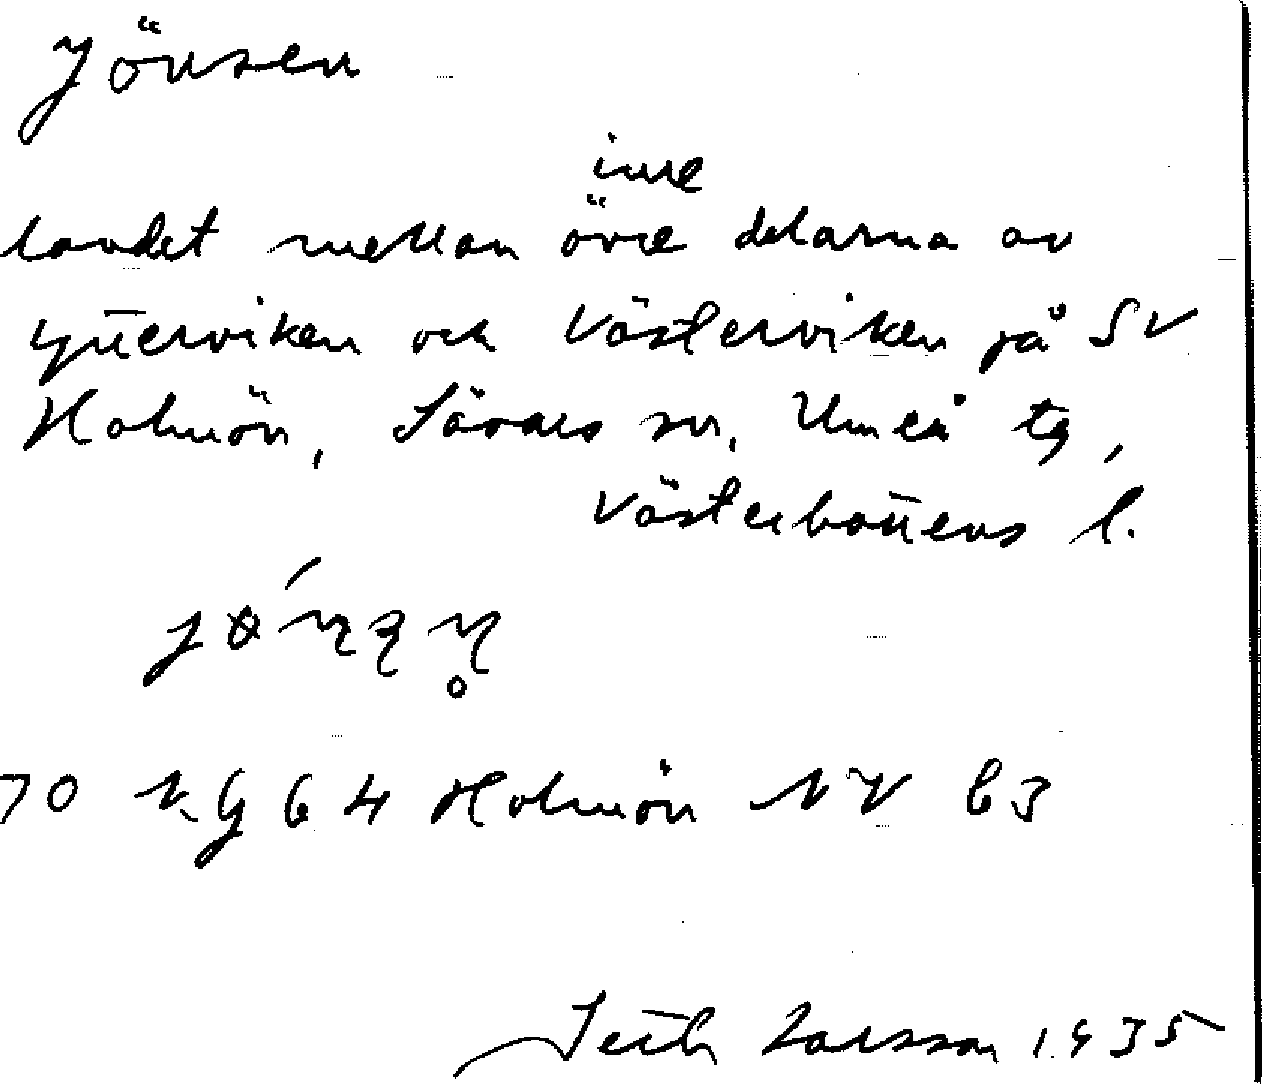 Jönsen
inre
landet mellan övre delarna av
Ytterviken och Västerviken på SV
Holmön, Sävars sn, Umeå tg,
Västerbottens l.
70 NG 64 Holmön NV 63
Larsson 1935